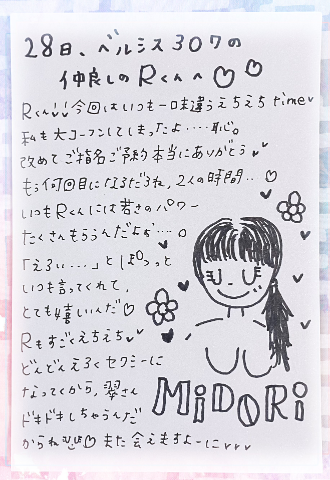 28日、ベルミス307の
仲良しのRくんへ♡♡
Rくん!! 今回はいつもー味違うえちえちtime♥
私も大コーフンしてしまったよ‥‥恥。
改めてご指名ご予約本当にありがとう♥♥
もう何回目になるだろね、2人の時間‥♡
いつもRくんには若さのパワー
たくさんもらうんだよぉ‥‥。
「えろぃ‥‥」とぽつっと
いつも言ってくれて、
とても嬉しいんだ♡
Rもすごくえちえち♥♥
どんどんえろくセクシーに
なってくから、翠さん
ドキドキしちゃうんだ
からね♡ また会えますよーに♥♥♥
MiDORi